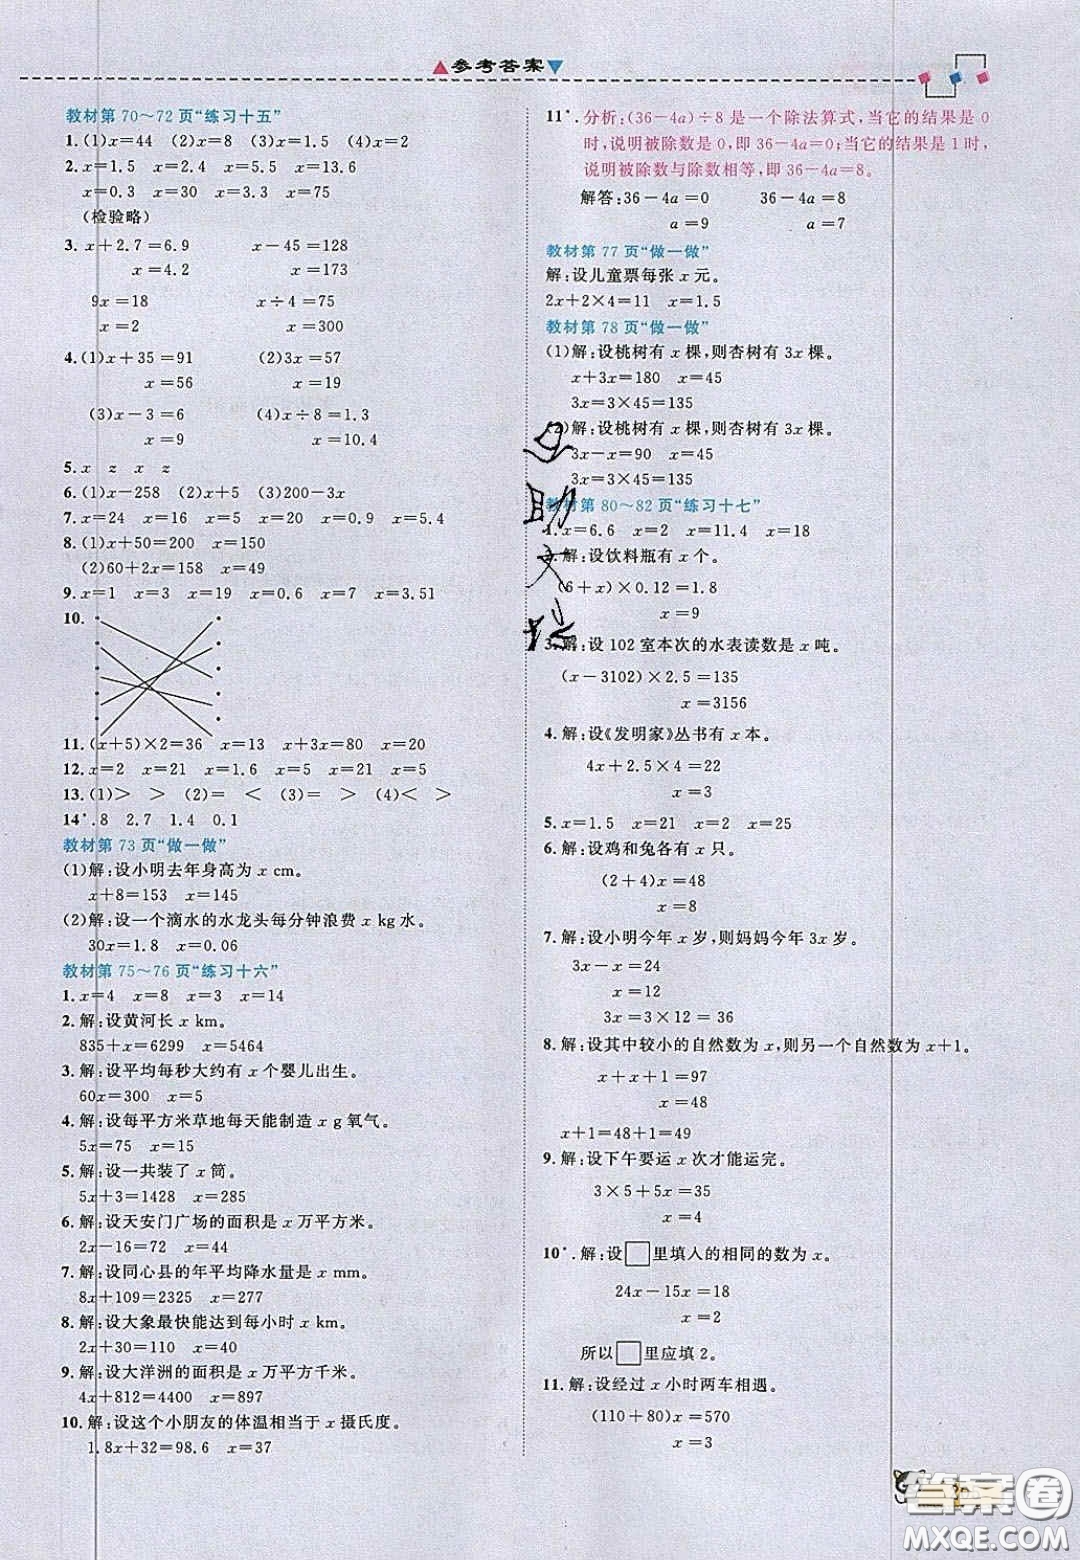 参考答案
教材第70～72页“练习十五”
1.(1)x=44 (2)x=8 (3)x=1.5 (4)x=2
2.x=1.5 x=2.4 x=5.5 x=13.6
x=0.3 x=30 x=3.3 x=75
(检验略)
3.x+2.7=6.9 x-45=128
x=4.2 x=173
9x=18 x÷4=75
x=2 x=300
4.(1)x+35=91 (2)3x=57
x=56 x=19
(3)x-3=6 (4)x÷8=1.3
x=9 x=10.4
5.x z x z
6.(1)x-258 (2)x+5 (3)200-3x
7.x=24 x=16 x=5 x=9 x=5.4
8.(1)x+50=200 x=150
(2)60+2x=158 x=49
9.x=1 x=3 x=19 x=0.6 x=7 x=3.51
10.
11.(x+5)×2=36 x=13 x+3x=80 x=20
12.x=2 x=21 x=1.6 x=5 x=21
13.(1)> > (2)= < (3)= > (4)< >
14*.8 2.7 1.4 0.1
教材第73页“做一做”
(1)解:设小明去年身高为x cm。
x+8=153 x=145
(2)解:设一个滴水的水龙头每分钟浪费x kg水。
30x=1.8 x=0.06
教材第75～76页“练习十六”
1.x=4 x=8 x=3 x=14
2.解:设黄河长x km。
835+x=6299 x=5464
3.解:设平均每秒大约有x个婴儿出生。
60x=300 x=5
4.解:设每平方米草地每天能制造x g氧气。
5x=75 x=15
5.解:设一共装了x筒。
5x+3=1428 x=285
6.解:设天安门广场的面积是x万平方米。
2x-16=72 x=44
7.解:设同心县的年平均降水量是x mm。
8x+109=2325 x=277
8.解:设大象最快能达到每小时x km。
2x+30=110 x=40
9.解:设大洋洲的面积是x万平方千米。
4x+812=4400 x=897
10.解:设这个小朋友的体温相当于x摄氏度。
1.8x+32=98.6 x=37
11*.分析:(36-4a)÷8是一个除法算式,当它的结果是0
时,说明被除数是0,即36-4a=0;当它的结果是1时,
说明被除数与除数相等,即36-4a=8。
解答:36-4a=0 36-4a=8
a=9 a=7
教材第77页“做一做”
解:设儿童票每张x元。
2x+2×4=11 x=1.5
教材第78页“做一做”
(1)解:设桃树有x棵,则杏树有3x棵。
x+3x=180 x=45
3x=3×45=135
(2)解:设桃树有x棵,则杏树有3x棵。
3x-x=90 x=45
3x=3×45=135
教材第80～82页“练习十七”
1.x=6.6 x=2 x=11.4 x=18
2.解:设饮料瓶有x个。
(6+x)×0.12=1.8
x=9
3.解:设102室本次的水表读数是x吨。
(x-3102)×2.5=135
x=3156
4.解:设《发明家》丛书有x本。
4x+2.5×4=22
x=3
5.x=1.5 x=21 x=2 x=25
6.解:设鸡和兔各有x只。
(2+4)x=48
x=8
7.解:设小明今年x岁,则妈妈今年3x岁。
3x-x=24
x=12
3x=3×12=36
8.解:设其中较小的自然数为x,则另一个自然数为x+1。
x+x+1=97
x=48
x+1=48+1=49
9.解:设下午要运x次才能运完。
3×5+5x=35
x=4
10*.解:设□里填入的相同的数为x。
24x-15x=18
x=2
所以□里应填2。
11.解:设经过x小时两车相遇。
(110+80)x=570
x=3
答案圈
MXQE.COM